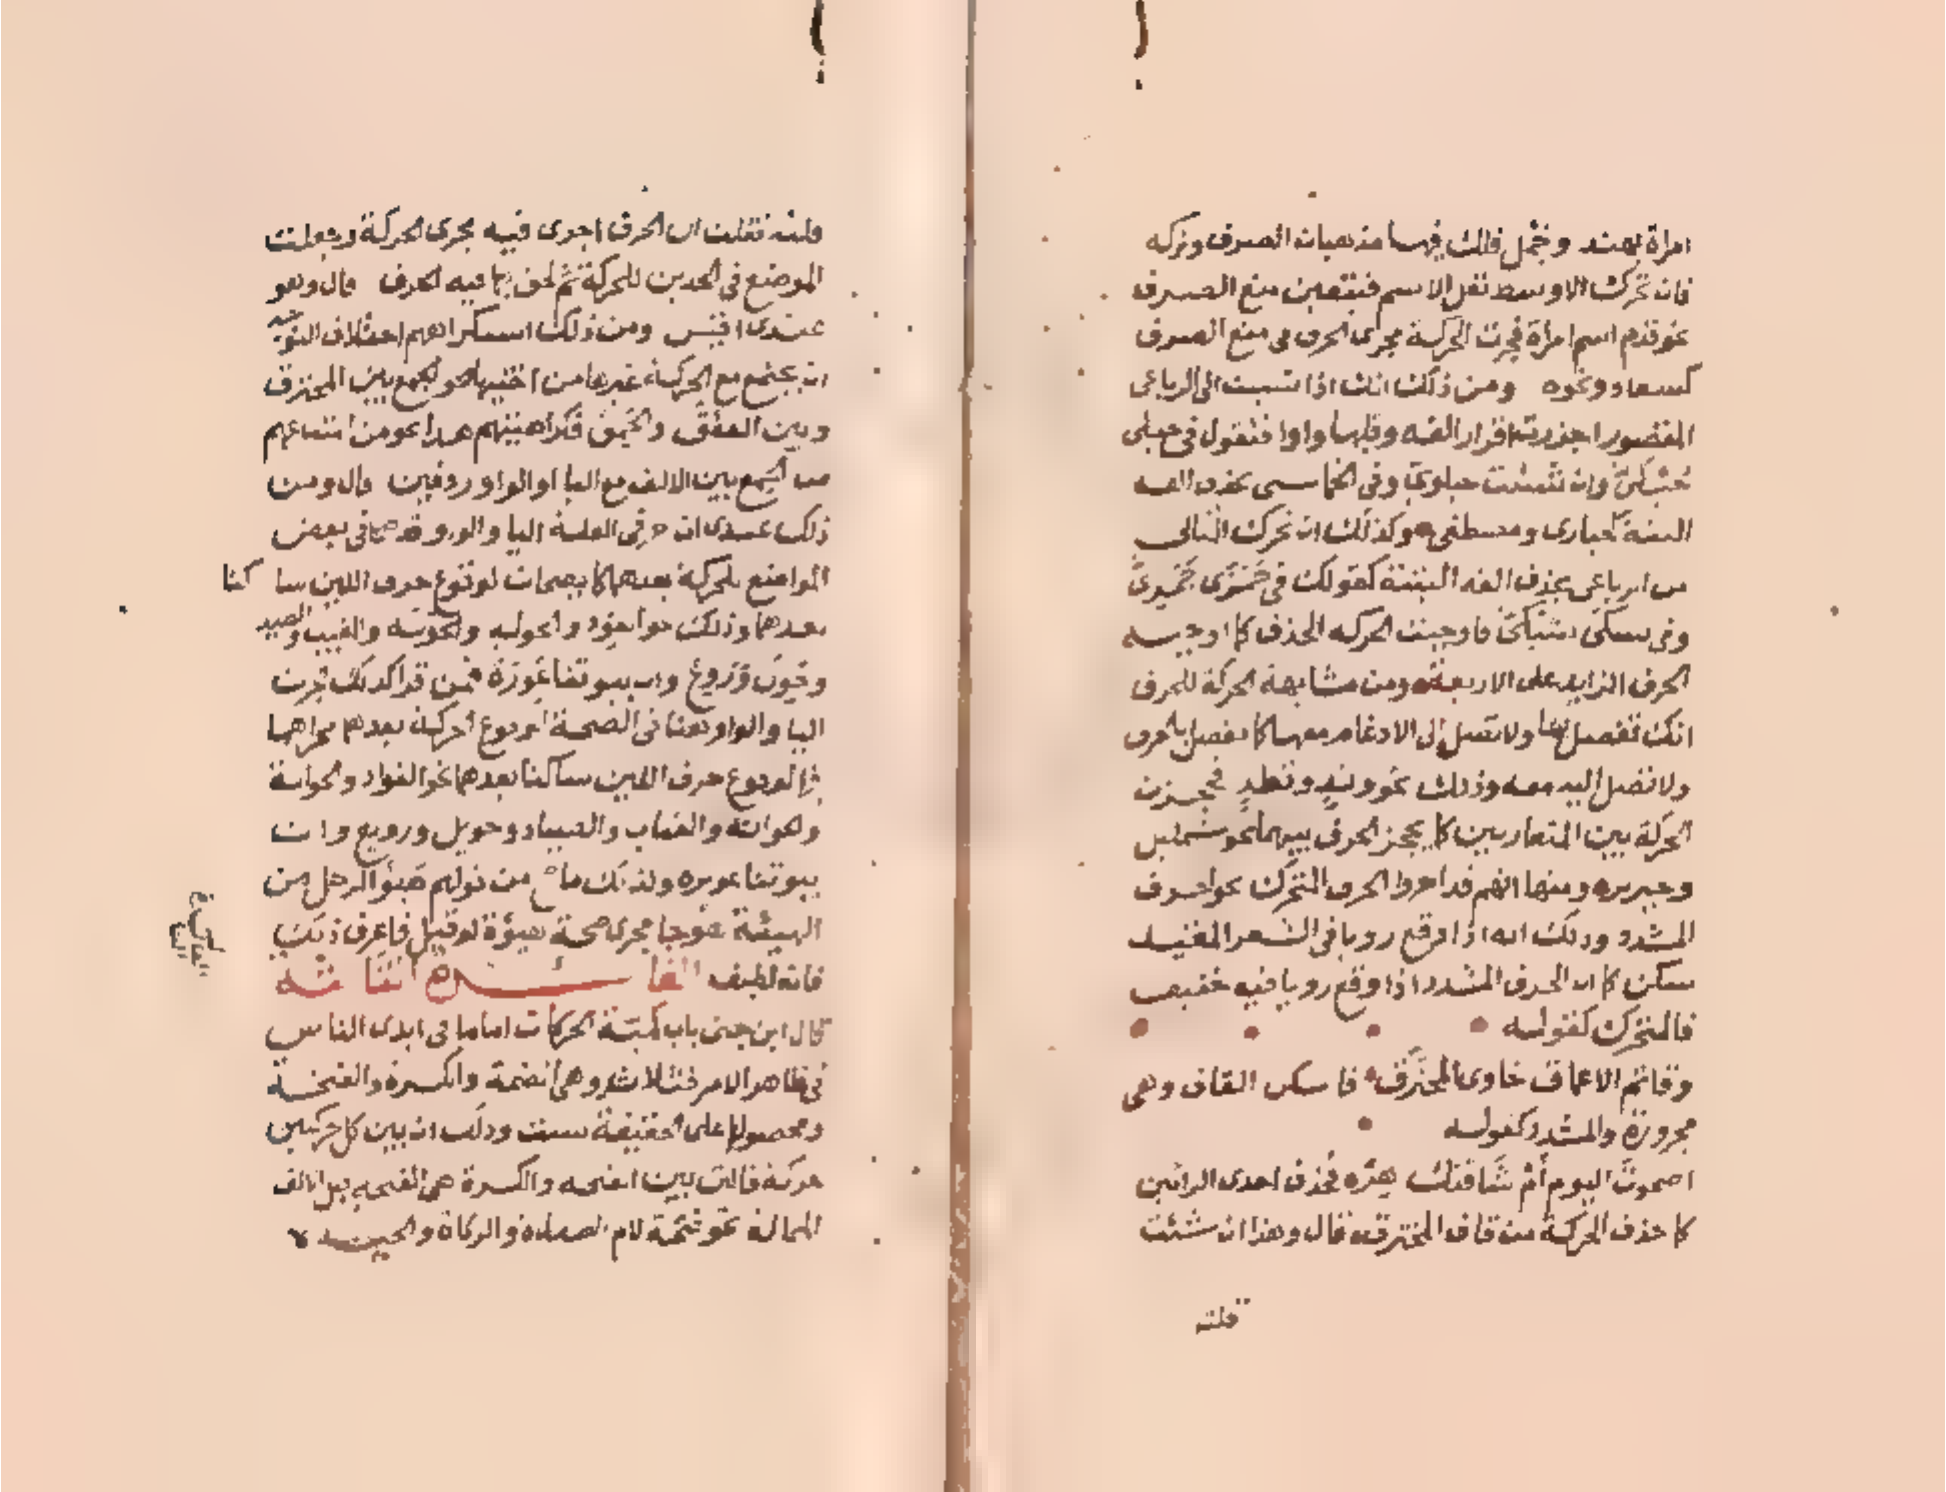 امراة بهند وجمل فلك فيها مذهبان الصرف وتركه
فان تحرك الاوسط ثقل الاسم فتعين منع الصرف
نحو قدم اسم امراة فجرت الحركة مجرى الحرف في منع الصرف
كسعاد ونحوه ومن ذلك انك اذا نسبت الى الرباعى
المقصور اجزت اقرار الفه وقلبها واوا فتقول فى حبلى
حبلىّ وان شئت حبلوىّ وفى الخماسى بحذف الفه
البتة كحبارى ومصطفى وكذلك ان تحرك الثانى
من الرباعى بحذف الفه البتة كقولك فى جَمَزَى جَمَزِىّ
وفى بشكى بشكىّ فاوجبت الحركه الحذف كما اوجبه
الحرف الزايد على الاربعة ومن مشابهة الحركة للحرف
انك تفصل بها ولا تصل الى الادغام معها كما تفصل بالحرف
ولا تصل اليه معه وذلك نحو وتدٍ وتطدٍ فحجزت
الحركة بين المتقاربين كما يحجز الحرف بينهما نحو شمليل
وحبربر ومنها انهم قد اجروا الحرف المتحرك نحو احرف
المشدد وذلك انه اذا وقع رويا فى الشعر المقيد
سكن كما ان الحرف المشدد اذا وقع رويا فيه خفف
فالمتحرك كقوله
وقاتم الاعماق خاوى المخترق فاسكن القاف وهى
مجرورة والمشدد كقوله
اصحوت اليوم أم شاقتك هِرّ فحذف احدى الرائين
كما حذف الحركة من قاف المخترق قال وهذا ان شئت
قلت
قلبته فقلت ان الحرف اجرى فيه مجرى الحركة وجعلت
الموضع فى الحذف للحركة ثم لحق بها فيه الحرف قال وهو
عندى اقيس ومن ذلك استكراههم اختلاف التوجيه
ان يجمع مع الحركة غيرها من اختيها نحو الجمع بين المخترق
وبين العقق والحمق فكراهيتهم هذا نحو من امتناعهم
من الجمع بين الالف مع اليا او الواو ردفين قال ومن
ذلك عندى ان حرفى العلة اليا والواو قد صحا فى بعض
المواضع للحركة بعدهما كما يصحان لوقوع حرف اللين ساكنا
بعدهما وذلك نحو القود والحوكه والخونه والغيب والصيد
وحَوِل ورَوِع وان بيوتنا عَوِرَة فمن قرا كذلك فجرت
اليا والواو هنا فى الصحة لوقوع الحركة بعدهما مجراهما
فيها لوقوع حرف اللين ساكنا بعدهما نحو القواد والحواكة
والخوانة والغياب والصياد وحويل ورويع وان
بيوتنا عويرة وكذلك ما صح من قولهم هَيُؤَ الرجل من
الهيئة هو جار مجرى صحة هيوؤ لو قيل فاعرف ذلك
فانه لطيف الفائدة الثالثه
قال ابن جنى باب كمية الحركات اما ما فى ايدى الناس
فى ظاهر الامر فثلاث وهى الضمة والكسرة والفتحة
ومحصولها على الحقيقة ست وذلك ان بين كل حركتين
حركة فالتى بين الفتحه والكسرة هى الفتحه قبل الالف
الممالة نحو فتحة لام الصلاة والزكاة والحيوة